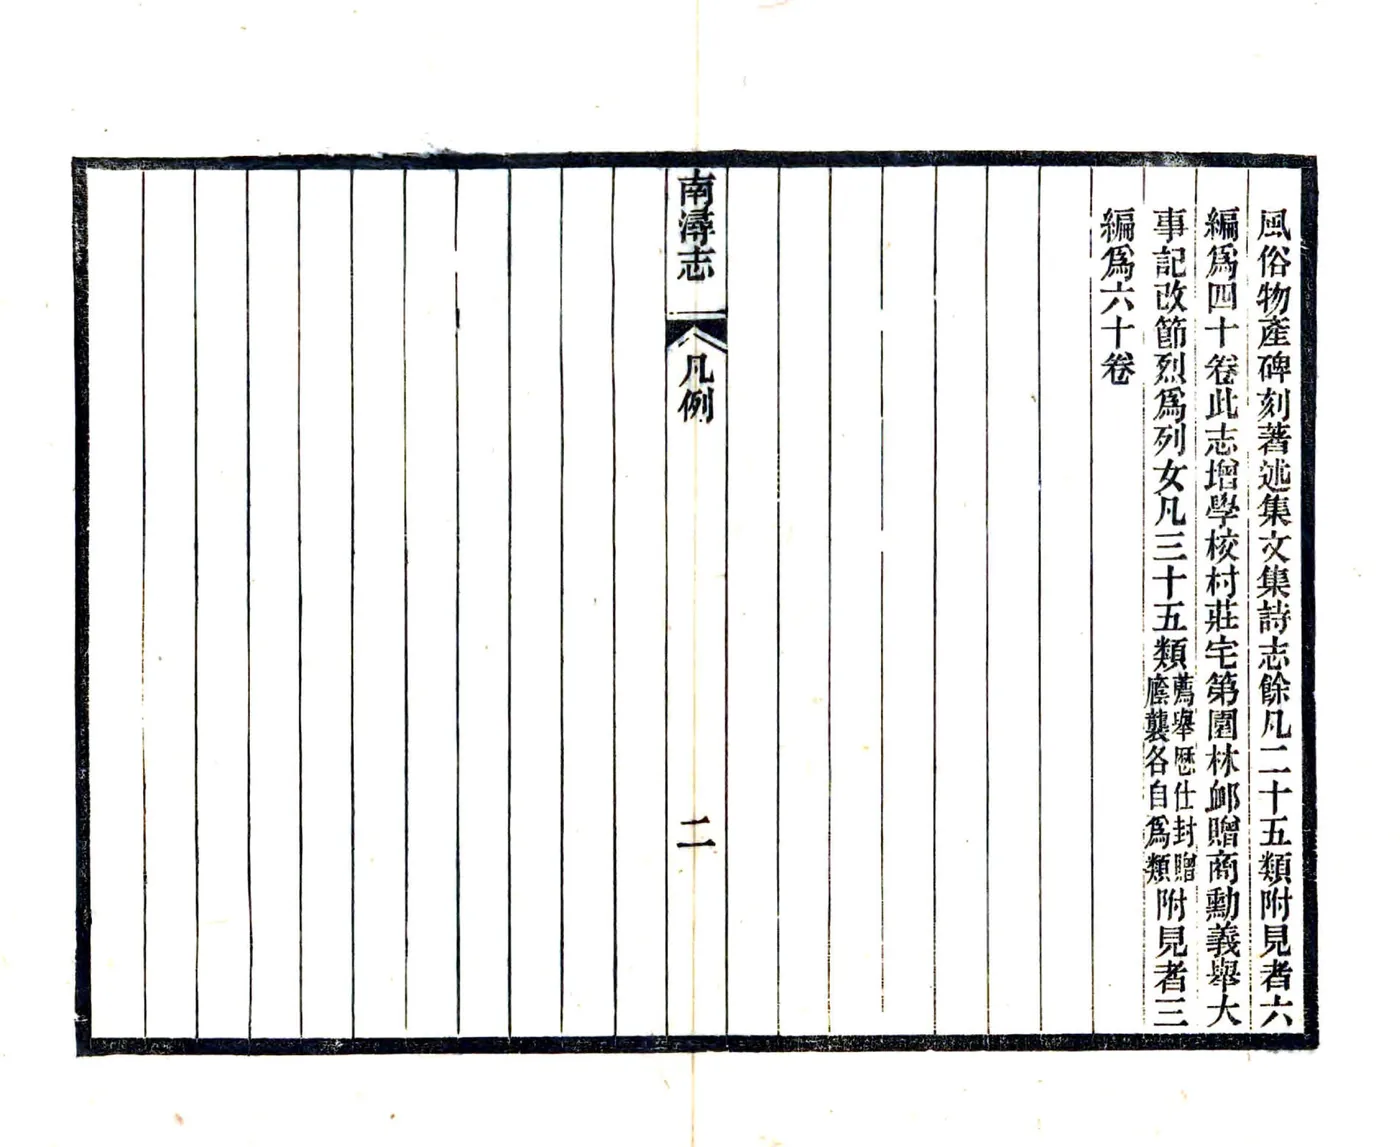 風俗物產碑刻著述集文集詩志餘凡二十五類附見者六
編爲四十卷此志增學校村莊宅第園林卹贈商勳義舉大
事記改節烈爲列女凡三十五類薦舉歷仕封贈廕襲各自爲類附見者三
編爲六十卷
南潯志
凡例
二